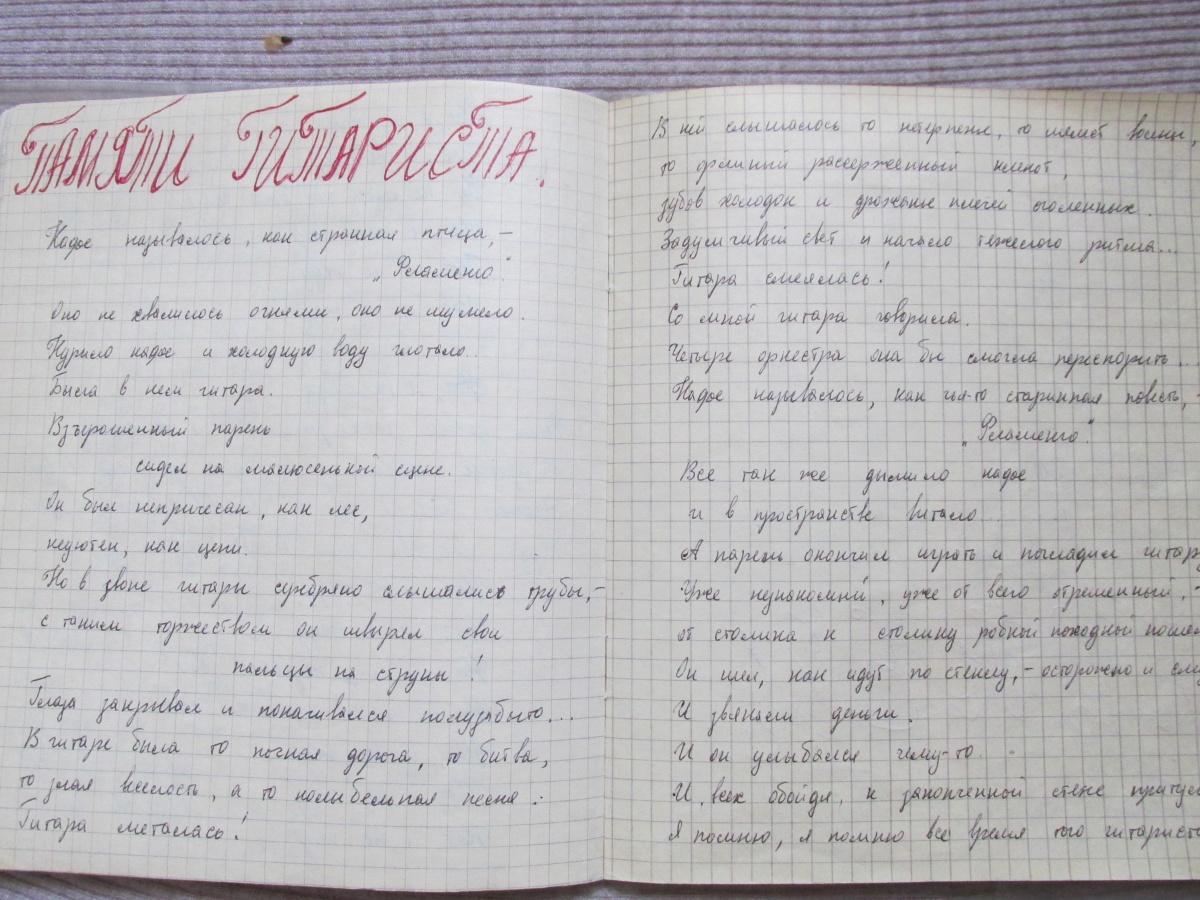 ПАМЯТИ ГИТАРИСТА.
Кафе называлось, как странная птица, –
„Фламенго".
Оно не хвалилось огнями, оно не шумело.
Курило кафе и холодную воду глотало..
Была в нем гитара.
Взъерошенный парень
сидел на малюсенькой сцене.
Он был непричесан, как лес,
неуютен, как цепи.
Но в звоне гитары серебряно слышались трубы, –
с таким торжеством он швырял свои
пальцы на струны!
Глаза закрывал и покачивался полузабыто...
В гитаре была то ночная дорога, то битва,
то злая веселость, а то колыбельная песня.
Гитара металась!
В ней слышалось то нетерпенье, то шелест волны,
то орлиный рассерженный клекот,
зубов холодок и дрожанье плечей оголенных.
Задумчивый свет и начало тяжелого ритма...
Гитара смеялась!
Со мной гитара говорила.
Четыре оркестра она бы смогла переспорить...
Кафе называлось, как чья-то старинная повесть, –
„Фламенго".
Все так же дымило кафе
и в пространстве витало...
А парень окончил играть и погладил гитару
Уже непокойный, уже от всего отрешенный, –
от столика к столику робкой походкой
Он шел, как идут по стеклу, – осторожно и
И звякали деньги.
И он улыбался чему-то...
И, всех обойдя, к законченной стене
Я помню, я помню все время того гитариста